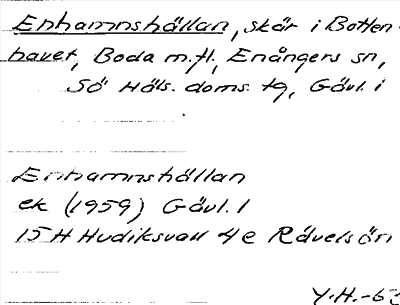 Enhamnshällan, skär i Botten-
havet, Boda m.fl., Enångers sn,
Sö Häls. doms. tg, Gävl. l
Enhamnshällan
ek (1959) Gävl. l
15H Hudiksvall 4e Rävelsön
Y.H.-63